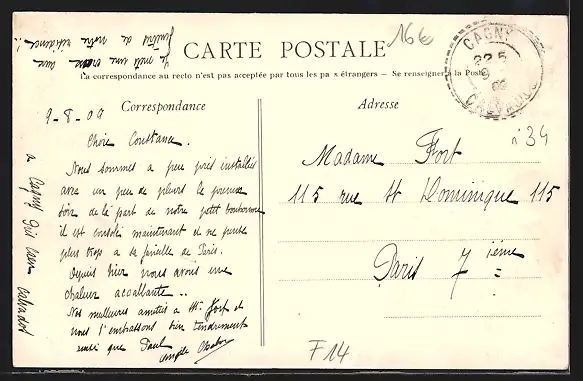 Je mets une croix aux
fenêtres de notre résidence.
166
CARTE POSTALE
La correspondance au recto n'est pas acceptée par tous les pays étrangers — Se renseigner à la Poste
CAGNY
CALVADOS
Correspondance
Adresse
9-8-09
Chère Constance.
Nous sommes a peu près installés
avec un peu de pleurs le premier
soir de la part de notre petit bonhomme
il est consolé maintenant et ne pense
plus trop a sa famille de Paris.
Depuis hier nous avons une
chaleur accablante ..
Nos meilleures amitiés a Mr Fort et
nous t'embrassons bien tendrement
ainsi que Paul
a Cagny près Caen Calvados
n°34
Madame Fort
115 rue St Dominique 115
Paris 7 ième
F14